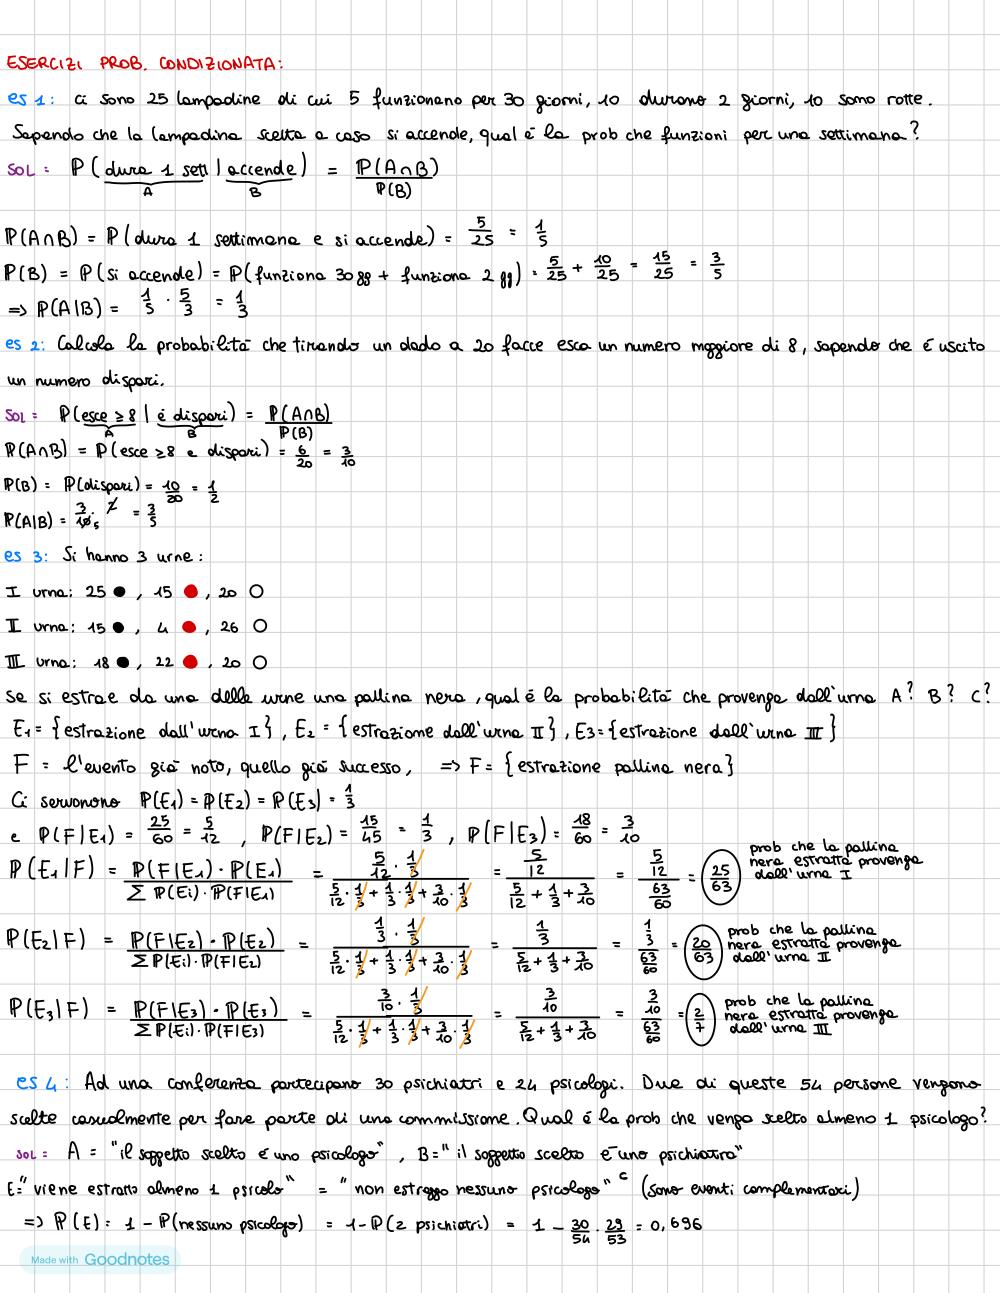 ESERCIZI PROB. CONDIZIONATA:
es 1: ci sono 25 lampadine di cui 5 funzionano per 30 giorni, 10 durano 2 giorni, 10 sono rotte.
Sapendo che la lampadina scelta a caso si accende, qual è la prob che funzioni per una settimana?
SOL: P(dura 1 sett | accende) = P(A∩B)/P(B)
A B
P(A∩B) = P(dura 1 settimana e si accende) = 5/25 = 1/5
P(B) = P(si accende) = P(funziona 30gg + funziona 2 gg) = 5/25 + 10/25 = 15/25 = 3/5
=> P(A|B) = 1/5 · 5/3 = 1/3
es 2: Calcola la probabilità che tirando un dado a 20 facce esca un numero maggiore di 8, sapendo che è uscito
un numero dispari.
SOL: P(esce ≥ 8 | è dispari) = P(A∩B)/P(B)
A B
P(A∩B) = P(esce ≥8 e dispari) = 6/20 = 3/10
P(B) = P(dispari) = 10/20 = 1/2
P(A|B) = 3/10 5 · 2 = 3/5
es 3: Si hanno 3 urne:
I urna: 25 ●, 15 ●, 20 ○
II urna: 15 ●, 4 ●, 26 ○
III urna: 18 ●, 22 ●, 20 ○
Se si estrae da una delle urne una pallina nera, qual è la probabilità che provenga dall'urna A? B? C?
E1 = {estrazione dall'urna I}, E2 = {estrazione dall'urna II}, E3 = {estrazione dall'urna III}
F = l'evento già noto, quello già successo, => F = {estrazione pallina nera}
Ci servonono P(E1) = P(E2) = P(E3) = 1/3
e P(F|E1) = 25/60 = 5/12, P(F|E2) = 15/45 = 1/3, P(F|E3) = 18/60 = 3/10
P(E1|F) = P(F|E1) · P(E1) / Σ P(Ei) · P(F|E1) = 5/12 · 1/3 / 5/12 · 1/3 + 1/3 · 1/3 + 3/10 · 1/3 = 5/12 / 5/12 + 1/3 + 3/10 = 5/12 / 63/60 = 25/63
prob che la pallina
nera estratta provenga
dall'urna I
P(E2|F) = P(F|E2) · P(E2) / Σ P(Ei) · P(F|E2) = 1/3 · 1/3 / 5/12 · 1/3 + 1/3 · 1/3 + 3/10 · 1/3 = 1/3 / 5/12 + 1/3 + 3/10 = 1/3 / 63/60 = 20/63
prob che la pallina
nera estratta provenga
dall'urna II
P(E3|F) = P(F|E3) · P(E3) / Σ P(Ei) · P(F|E3) = 3/10 · 1/3 / 5/12 · 1/3 + 1/3 · 1/3 + 3/10 · 1/3 = 3/10 / 5/12 + 1/3 + 3/10 = 3/10 / 63/60 = 2/7
prob che la pallina
nera estratta provenga
dall'urna III
es 4: Ad una conferenza partecipano 30 psichiatri e 24 psicologi. Due di queste 54 persone vengono
scelte casualmente per fare parte di una commissione. Qual è la prob che venga scelto almeno 1 psicologo?
SOL: A = "il soggetto scelto è uno psicologo", B = "il soggetto scelto è uno psichiatra"
E = "viene estratto almeno 1 psicolo" = "non estraggo nessuno psicologo" ᶜ (sono eventi complementari)
=> P(E) = 1 - P(nessuno psicologo) = 1 - P(2 psichiatri) = 1 - 30/54 · 29/53 = 0,696
Made with Goodnotes